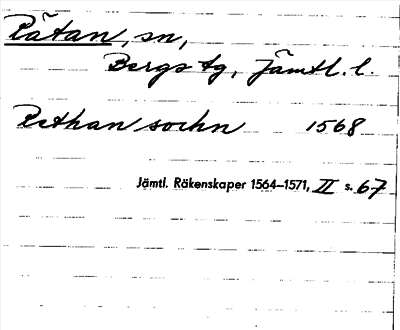 Rätan, sn,
Bergs tg, Jämtl. l.
Rethan sochn 1568
Jämtl. Räkenskaper 1564–1571, II s. 67